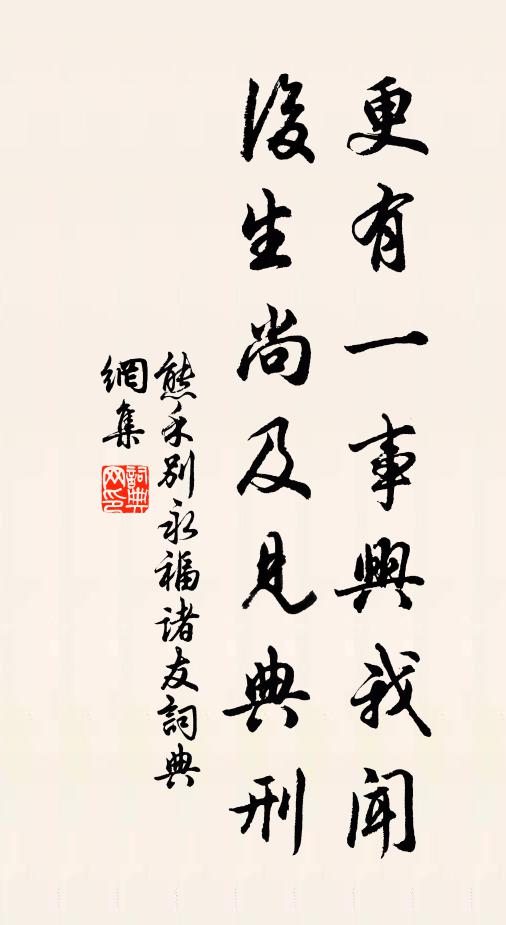 更有一事興我聞
後生尚及見典刑
熊禾別永福諸友詞典
網集
詞典網印